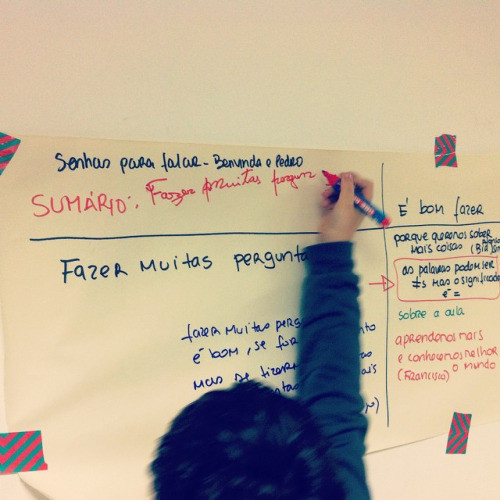 Senhas para falar - Benvinda e Pedro
SUMÁRIO: Fazer muitas pergun
Fazer muitas pergunta
fazer muitas perg
é bom, se for
mas se
É bom fazer
porque queremos saber
mais coisas
as palavras podem ser
≠s mas o significado
é =
sobre a aula
aprendemos mais
e conhecemos melhor
(Francisco) o mundo